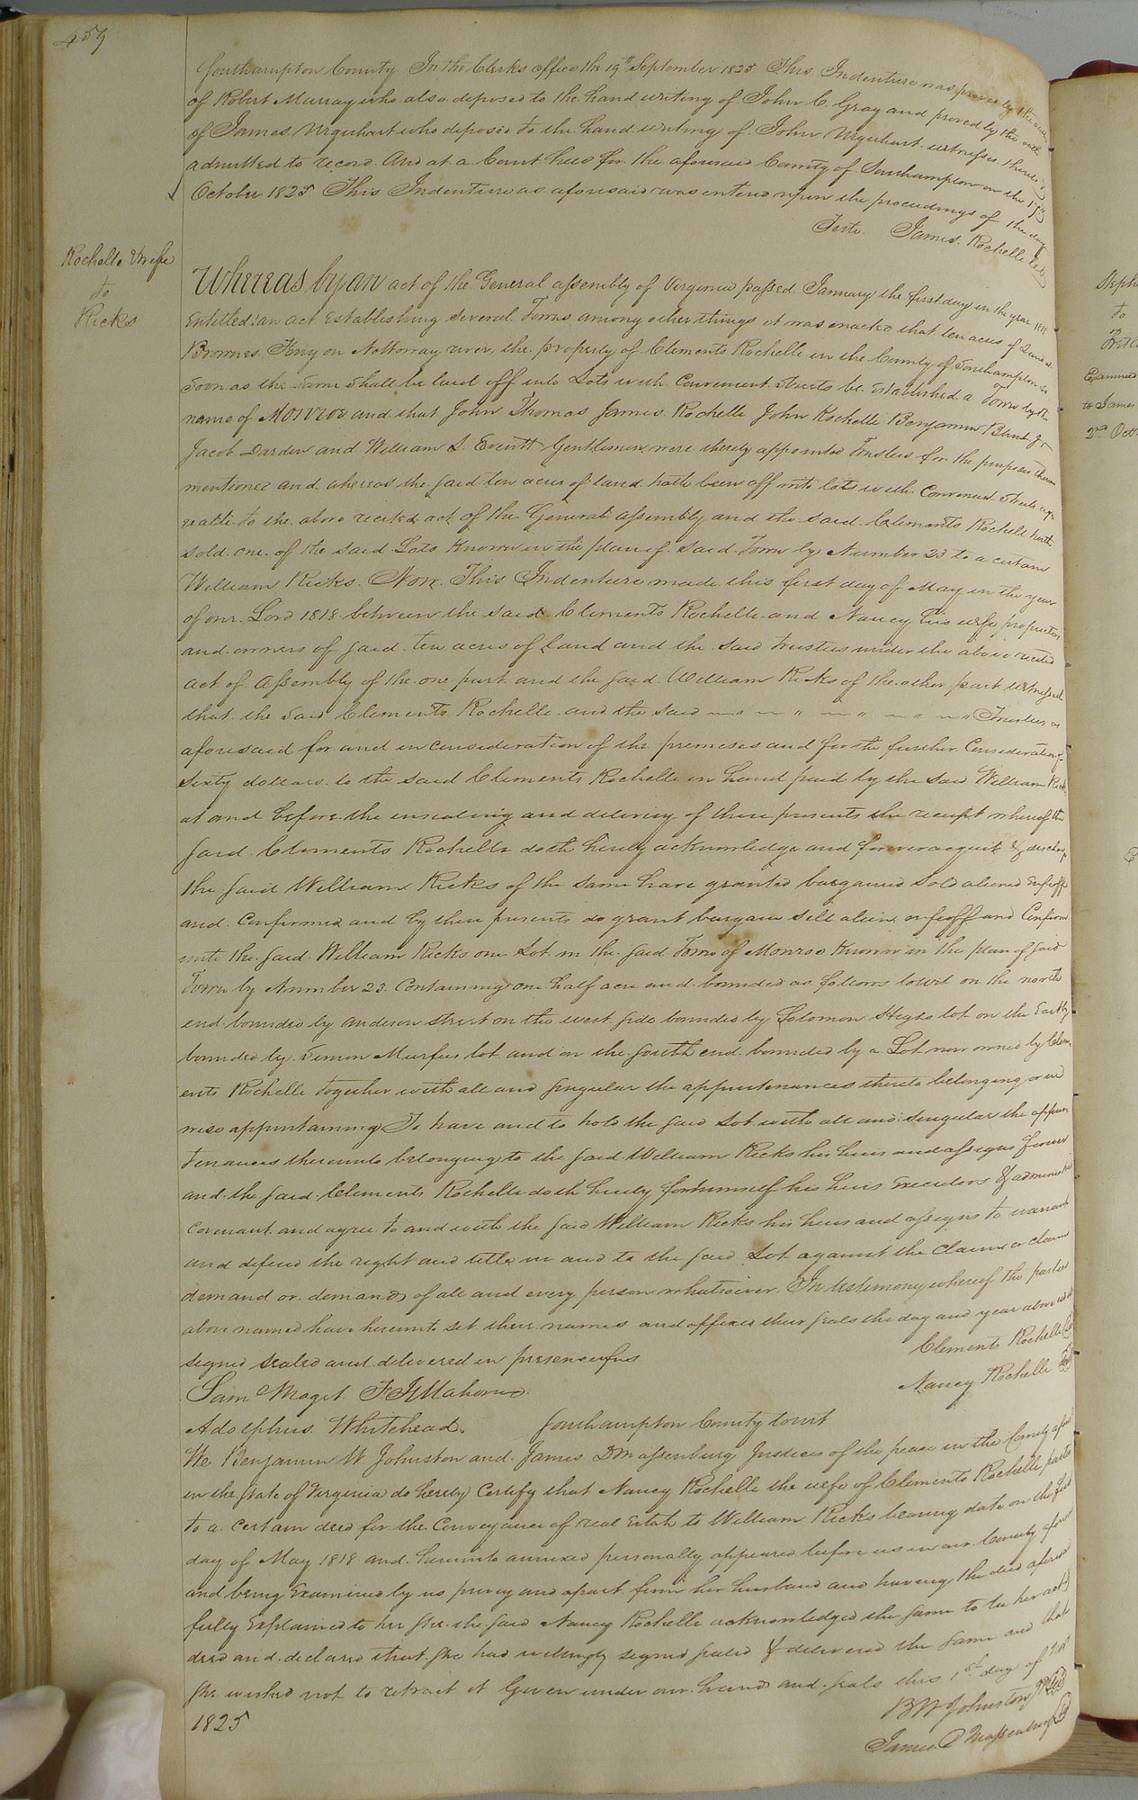 459
Southampton County In the Clerks office the 19th September 1825 This Indenture was proved by the oath
of Robert Murray who also deposed to the hand writing of John C. Gray and proved by the oath
of James Urquhart who deposed to the hand writing of John Urquhart witnesses thereto &
admitted to record. And at a Court held for the aforesaid County of Southampton on the 17th
October 1825 This Indenture as aforesaid was entered upon the proceedings of the day
Teste. James. Rochelle
Rochelle & wife
to
Ricks
Whereas by an act of the General assembly of Virginia passed January the first day in the year
Entitled an act Establishing several Towns among other things it was enacted that ten acres of Land at
Brownes. Ferry on Nottoway river, the property of Clements Rochelle in the County of Southampton
Soon as the same shall be laid off into Lots with Convenient Streets be established a Town by the
name of Monroe and that John Thomas James. Rochelle John Rochelle Benjamin Blunt Jr
Jacob Darden and William S. Everitt Gentlemen were thereby appointed Trustees for the purposes therein
mentioned and whereas the said ten acres of land hath been off into lots with Convenient Streets
to the above recited act of the General assembly and the said Clements Rochelle hath
sold one of the said Lots Known in the plan of said Town by Number 23 to a certain
William Ricks. Now. This Indenture made this first day of May in the year
of our Lord 1818 between the said Clements Rochelle and Nancy his wife proprietors
and owners of said ten acres of Land and the said trustees under the above recited
act of Assembly of the one part and the said William Ricks of the other part witnesseth
that the said Clements Rochelle and the said Trustees as
aforesaid for and in consideration of the premises and for the further Consideration of
Sixty dollars to the said Clements Rochelle in hand paid by the said William Ricks
at and before the ensealing and delivery of these presents the receipt whereof the
said Clements Rochelle doth hereby acknowledge and forever acquit & discharge
the said William Ricks of the same have granted bargained Sold aliened Enfeoff
and Confirmed and by these presents do grant bargain sell alien enfeoff and Confirm
unto the said William Ricks one Lot in the said Town of Monroe Known in the plan of said
Town by Number 23. Containing one half acre and bounded as follows towit on the north
end bounded by anderson street on the west side bounded by Solomon lot on the East by
bounded by Simon Murfees lot and on the South end bounded by a Lot now owned by Clem
ents Rochelle together with all and singular the appurtenances thereto belonging or in
wise appurtaining To have and to hold the said Lot with all and singular the appur
tenances thereunto belonging to the said William Ricks his heirs and assigns forever
and the said Clements Rochelle doth hereby for himself his heirs Executors & administrators
Covenant and agree to and with the said William Ricks his heirs and assigns to warrant
and defend the right and title in and to the said Lot against the Claim or claims
demand or demands of all and every person whatsoever. In testimony whereof the parties
above named have hereunto set their names and affixed their seals the day and year above
signed sealed and delivered in presence of us
Clements Rochelle
Nancy Rochelle
Sam Maget
Adolphus. Whitehead.
Southampton County towit
We Benjamin W Johnston and James D Massenburg Justices of the peace in the County afore
in the State of Virginia do hereby Certify that Nancy Rochelle the wife of Clements Rochelle parties
to a certain deed for the Conveyance of real Estate to William Ricks bearing date on the first
day of May 1818 and hereunto annexed personally appeared before us in our County afore
and being Examined by us privey and apart from her husband and having the deed aforesd
fully Explained to her she the said Nancy Rochelle acknowledged the same to be her act &
deed and declared that she had willingly signed sealed & delivered the same and that
She wished not to retract it Given under our hands and seals this 1st day of
1825
B W Johnston
James D Massenburg
to
Examined
to James
2nd Oct.